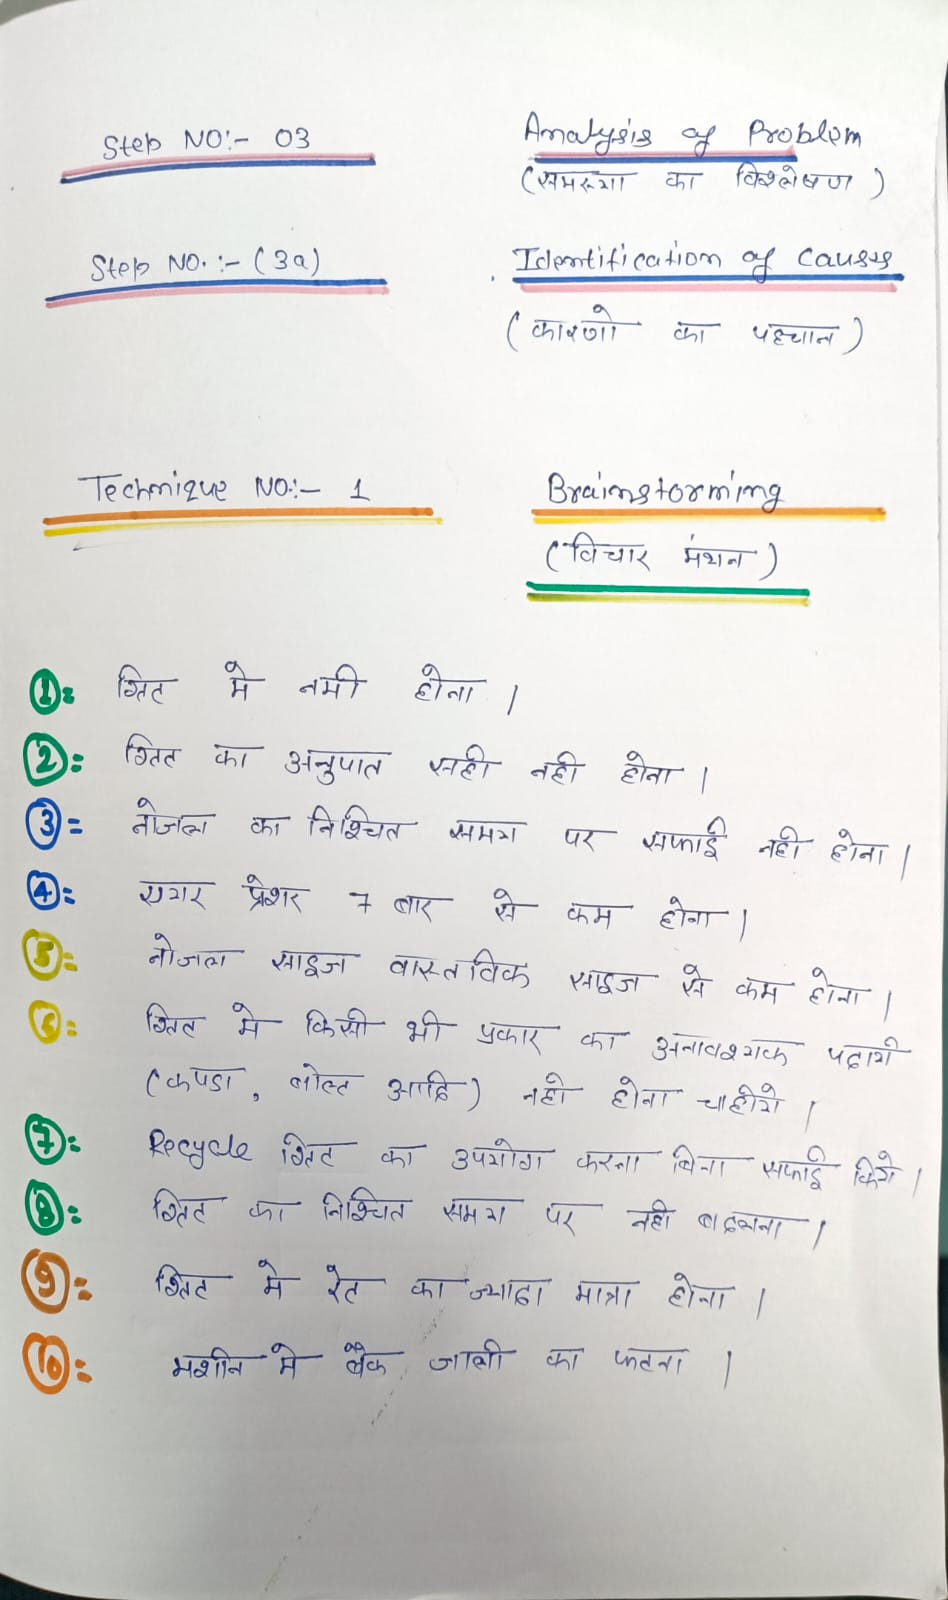 Step NO:- 03
Analysis of Problem
(समस्या का विश्लेषण)
Step NO. :- (3a)
Identification of Causes
(कारणो का पहचान)
Technique NO:- 1
Brainstorming
(विचार मंथन)
1= ग्रिट मे नमी होना।
2= ग्रिट का अनुपात सही नही होना।
3= नोजल का निश्चित समय पर सफाई नही होना।
4= एयर प्रेशर 7 बार से कम होना।
5= नोजल साइज वास्तविक साइज से कम होना।
6= ग्रिट मे किसी भी प्रकार का अनावश्यक पदार्थ
(कपडा, बोल्ट आदि) नही होना चाहीये।
7= Recycle ग्रिट का उपयोग करना बिना सफाई किये।
8= ग्रिट का निश्चित समय पर नही बदलना।
9= ग्रिट मे रेत का ज्यादा मात्रा होना।
10= मशीन मे बैक जाली का फटना।